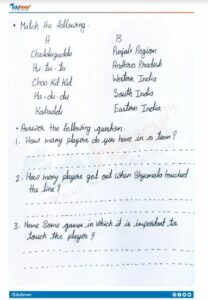 • Match the following.
A B
Chedduguddu Punjab Region
Hu-tu-tu Andhra Pradesh
Choo Kit Kit Western India
Ha-du-du South India
Kabaddi Eastern India
• Answer the following question.
1. How many players do you have in a team?
2. How many player got out when Shyamala touched
the line?
3. Name Some games in which it is important to
touch the player?